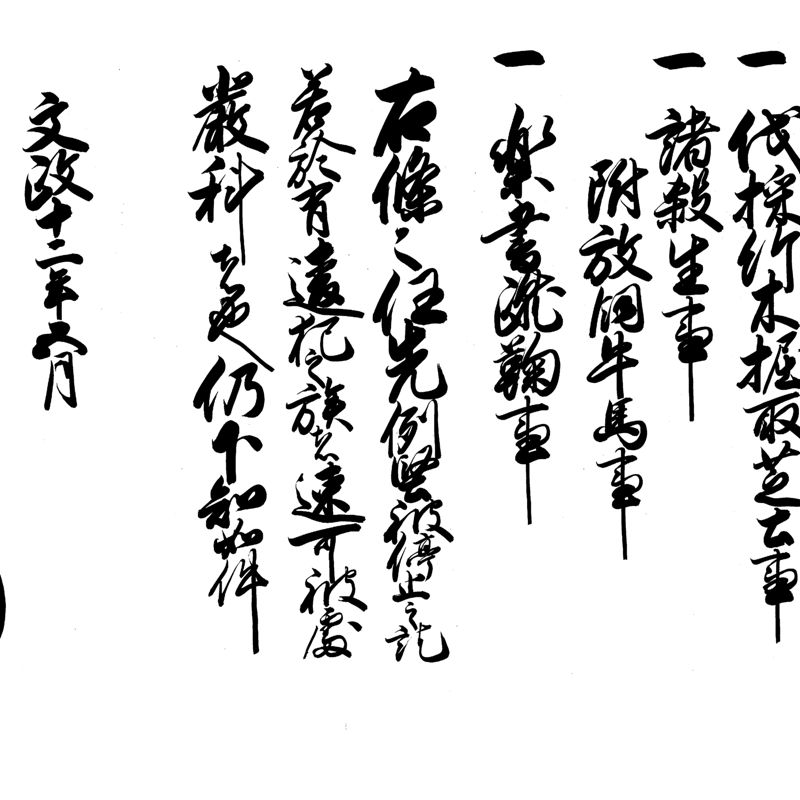 一 伐採竹木掘取芝土事
一 諸殺生事
附放飼牛馬事
一 楽書蹴鞠事
右條々任先例堅被停止之訖
若於有違犯之族者速可被處
嚴科者也仍下知如件
文政十二年五月